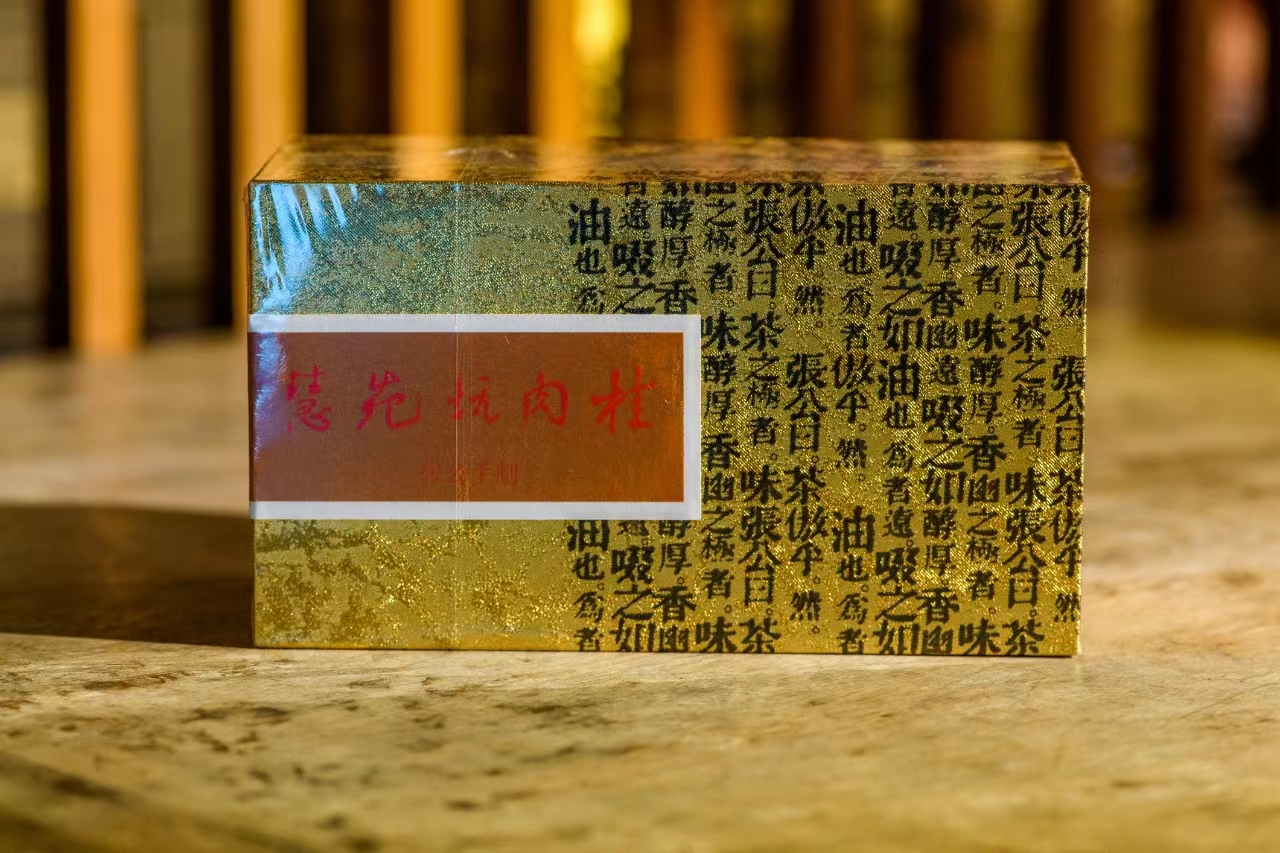 慧苑坑肉桂
手制
傲乎。然。張公曰。茶傲乎。然。
張公曰。茶之極者。味張公曰。茶
之極者。味醇厚。香幽之極者。味
如醇厚。香幽遠啜之如醇厚。香幽
者遠。啜之如油也。爲者遠。啜之如
油也。爲者傲乎。然。油也。爲者
傲乎。然。張公曰。茶傲乎。然。
張公曰。茶之極者。味張公曰。茶
之極者。味醇厚。香幽之極者。味
如醇厚。香
醇厚。香幽
者遠。啜之
遠。啜之如
油也。爲
油也。爲者